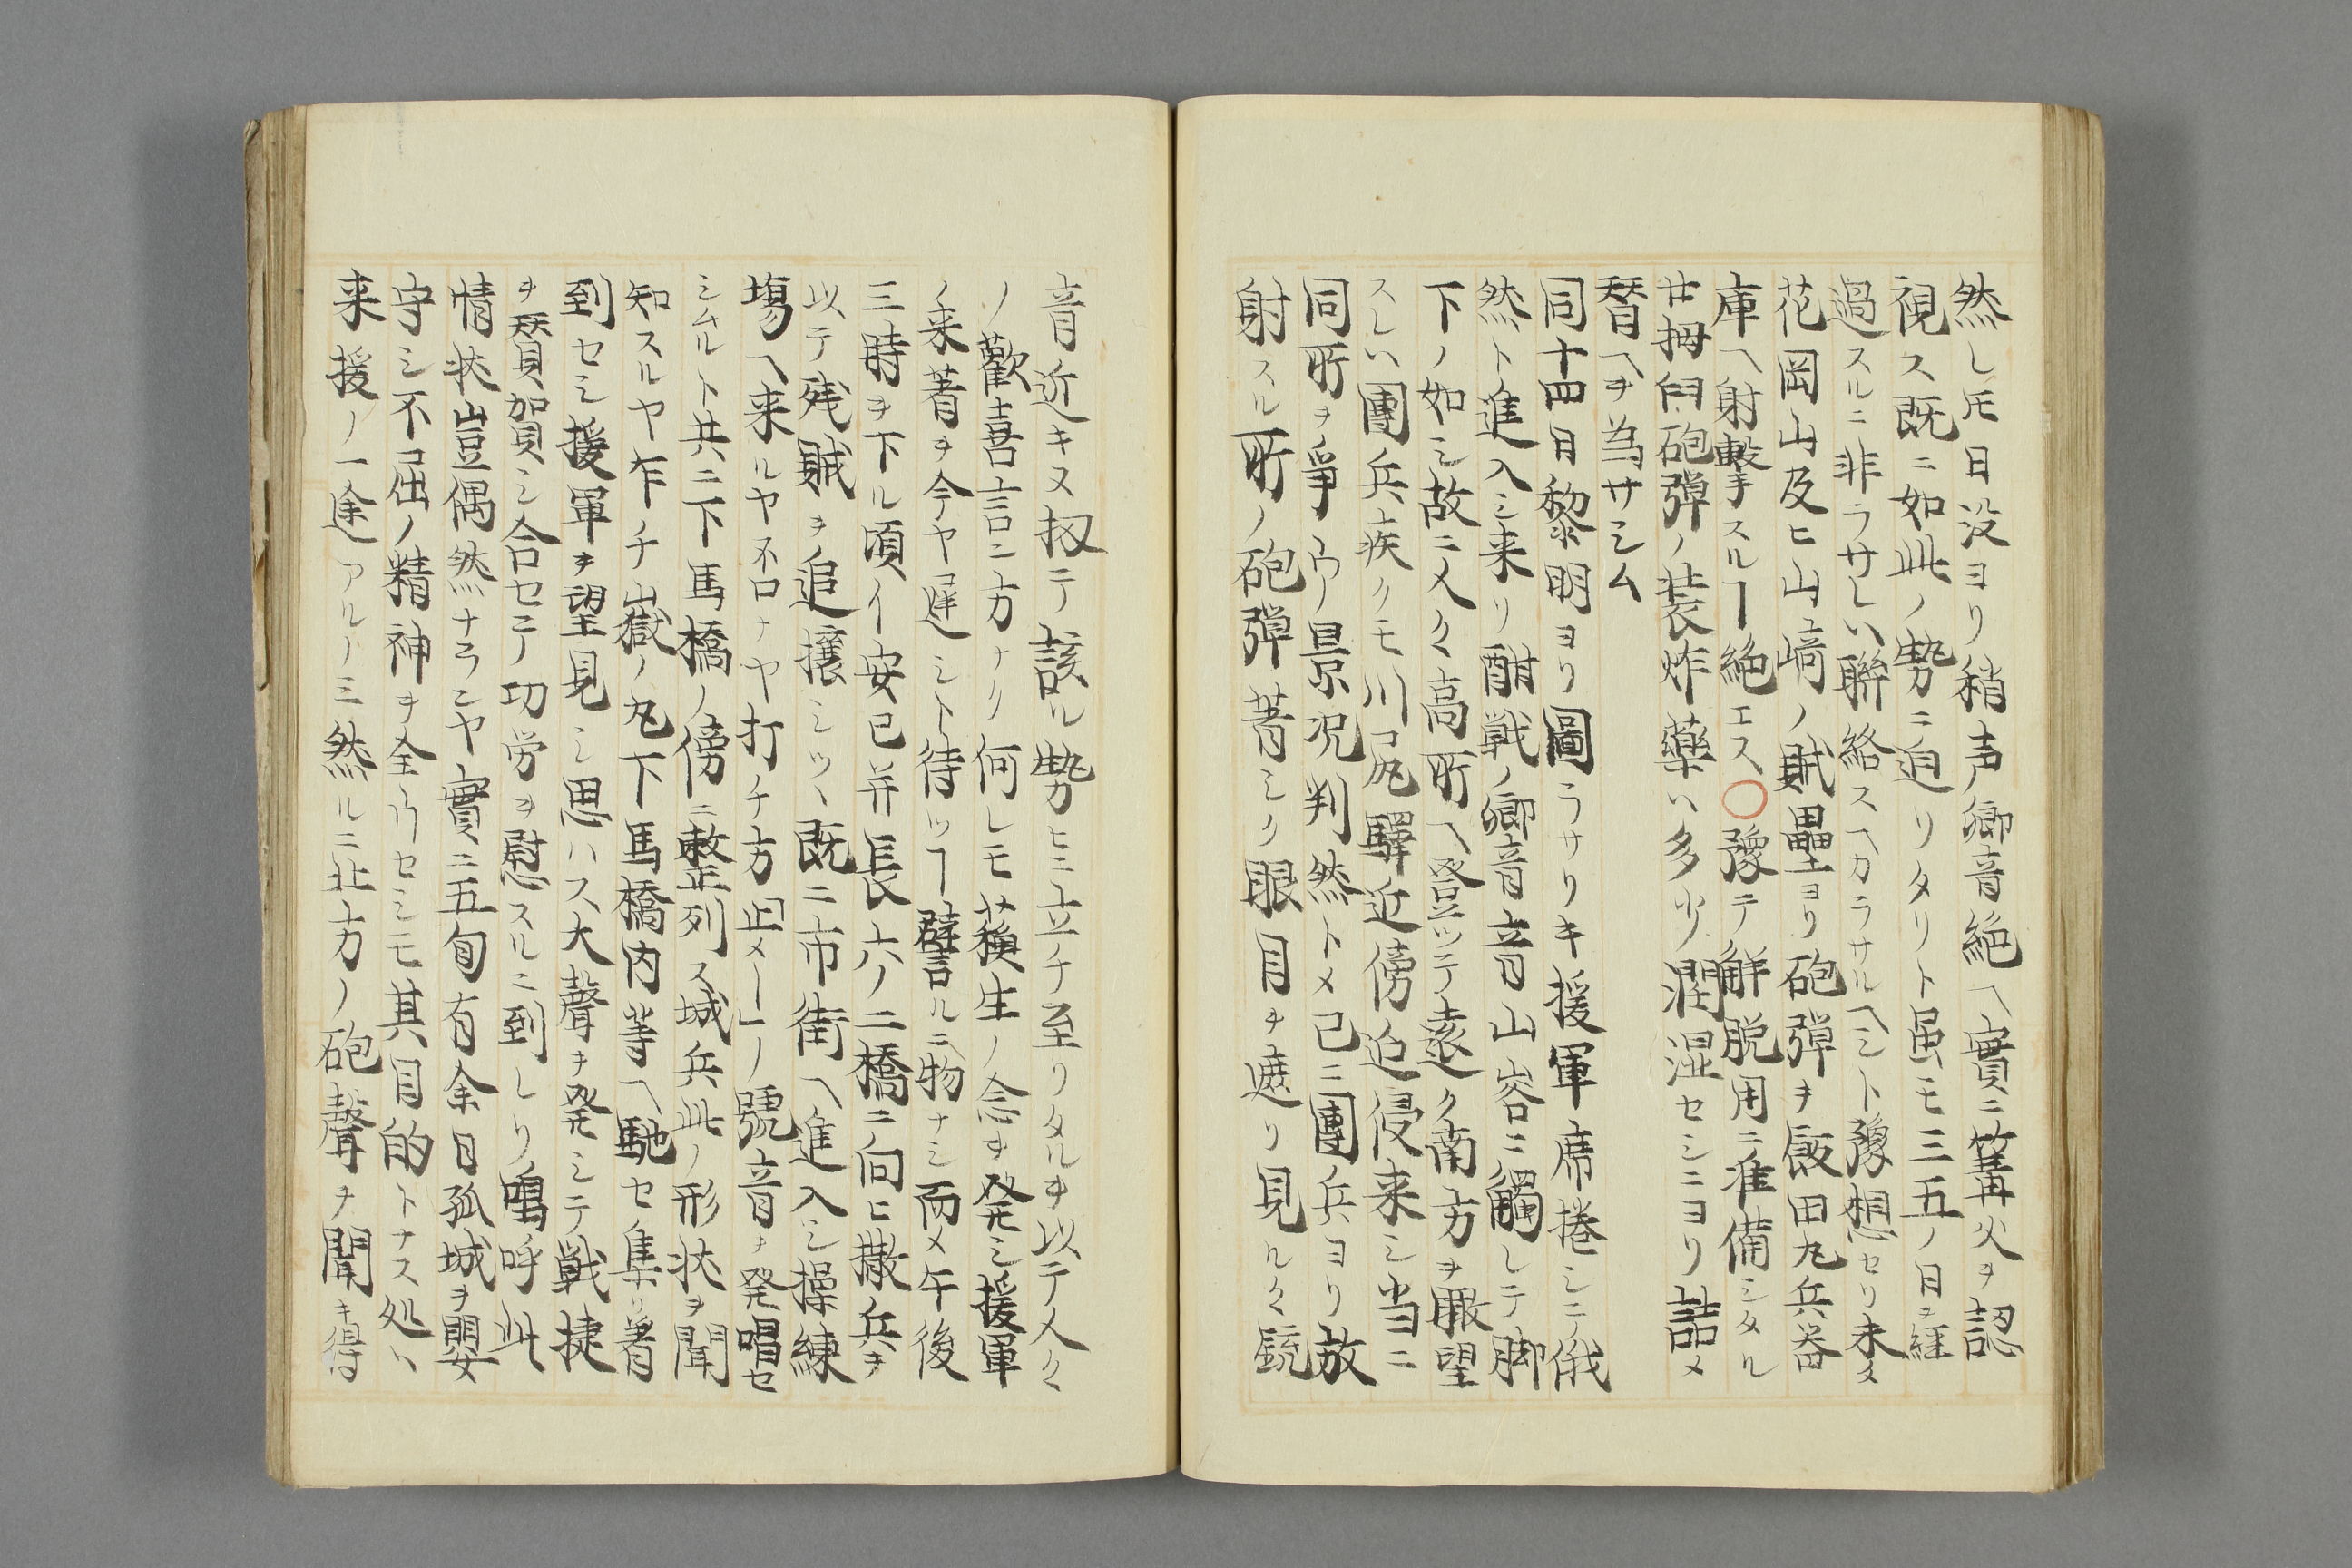 然レ𪜈日没ヨリ稍声郷音絶ヘ實ニ篝火ヲ認
視ス既ニ如此ノ勢ニ迫リタリト虽モ三五ノ日ヲ経
過スルニ非ラサレハ聯絡スヘカラサルヘシト豫想セリ未タ
花岡山及ヒ山﨑ノ賊壘ヨリ砲弾ヲ飯田丸兵器
庫ヘ射撃スルヿ絶エス〇豫テ解脱用ニ准備シタル
廿拇臼砲弾ノ装炸藥ハ多少潤湿セシニヨリ詰メ
替ヘヲ為サシム
同十四日黎明ヨリ圖ラサリキ援軍席捲シテ俄
然ト進入シ来リ酣戦ノ郷音音山谷ニ觸レテ脚
下ノ如シ故ニ人々高所ヘ登ツテ遠ク南方ヲ眼望
スレハ團兵疾クモ川尻驛近傍迠侵来シ当ニ
同所ヲ爭フノ景況判然トメ已ニ團兵ヨリ放
射スル所ノ砲弾著シク眼目ヲ遮リ見ル々銃
音近キヌ扨テ該ル勢ヒニ立チ至リタルヲ以テ人々
ノ歡喜言ニ方ナリ何レモ蘓生ノ念ヲ発シ援軍
ノ来著ヲ今ヤ遅シト待ツヿ譬ルニ物ナシ而メ午後
三時ヲ下ル頃イ安已并長六ノ二橋ニ向ヒ撒兵ヲ
以テ残賊ヲ追攘シツヽ既ニ市街ヘ進入シ操練
塲ヘ来ルヤ否ナヤ打チ方「止メー」ノ號音ヲ発唱セ
シムルト共ニ下馬橋ノ傍ニ整列ス城兵此ノ形状ヲ聞
知スルヤ乍チ嶽ノ丸下馬橋内等ヘ馳セ集リ著
到セシ援軍ヲ望見シ思ハス大聲ヲ発シテ戦捷
ヲ賛賀シ合セテノ功労ヲ慰スルニ到レリ嗚呼此
情状豈偶然ナランヤ實ニ五旬有余日孤城ヲ嬰
守シ不屈ノ精神ヲ全フセシモ其目的トナス処ハ
来援ノ一途アルノミ然ルニ北方ノ砲聲ヲ聞キ得